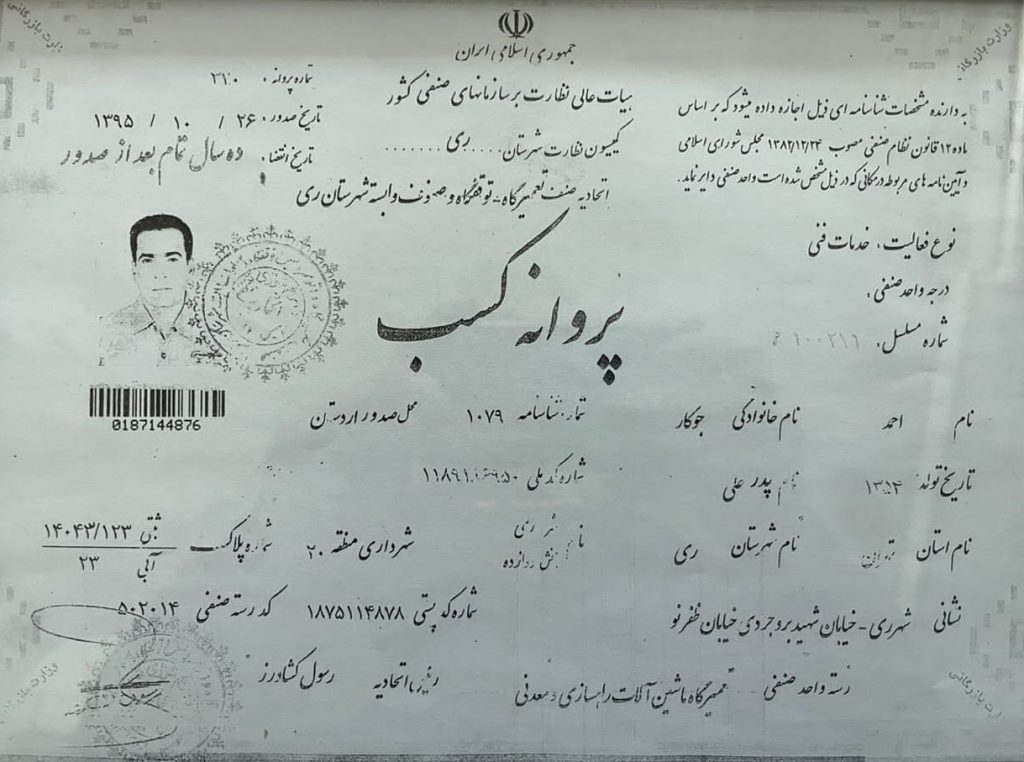 جمهوری اسلامی ایران
هیات عالی نظارت بر سازمانهای صنفی کشور
کمیسیون نظارت شهرستان .... ری .......
اتحادیه صنف تعمیرگاه - توقفگاه و صنوف وابسته شهرستان ری
شماره پروانه : ۲۱۰
تاریخ صدور : ۲۶ / ۱۰ / ۱۳۹۵
تاریخ انقضاء : ده سال تمام بعد از صدور
به دارنده مشخصات شناسنامه ای ذیل اجازه داده میشود که بر اساس
ماده ۱۲ قانون نظام صنفی مصوب ۱۳۸۲/۱۲/۲۴ مجلس شورای اسلامی
و آیین نامه های مربوطه در مکانی که در ذیل مشخص شده است واحد صنفی دایر نماید.
نوع فعالیت : خدمات فنی
درجه واحد صنفی :
شماره مسلسل :
پروانه کسب
0187144876
نام احمد نام خانوادگی جوکار شماره شناسنامه ۱۰۷۹ محل صدور اردستان
تاریخ تولد ۱۳۵۴ نام پدر علی شماره کد ملی
نام استان تهران نام شهرستان ری نام شهر ری شهرداری منطقه ۲۰ شماره پلاک ثبتی ۱۴۰۴۳/۱۲۳
بخش آبی ۲۳
نشانی شهرری - خیابان شهید بروجردی خیابان ظفر نو شماره کد پستی ۱۸۷۵۱۱۴۸۷۸ کد رسته صنفی ۵۰۲۰۱۴
رسته واحد صنفی تعمیرگاه ماشین آلات راهسازی و معدنی رئیس اتحادیه رسول کشاورز
وزارت بازرگانی
وزارت بازرگانی
وزارت بازرگانی
وزارت بازرگانی